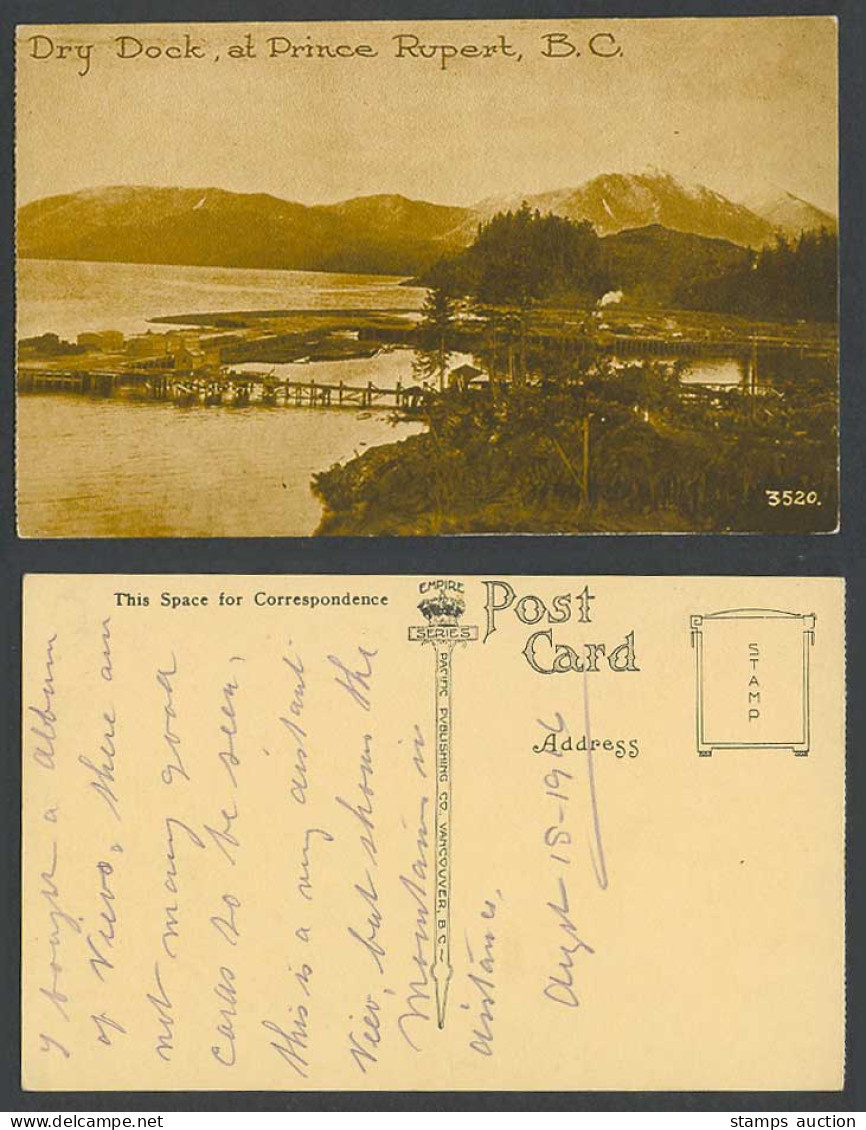 Dry Dock, at Prince Rupert, B.C.
3520.
This Space for Correspondence
EMPIRE
SERIES
PACIFIC PUBLISHING CO. VANCOUVER, B.C.
Post
Card
STAMP
Address
I bought a Album
of Views, there are
not many good
cards to be seen,
this is a very distant
View, but shows the
Mountains in
distance,
Augst 18-1916
stamps auction